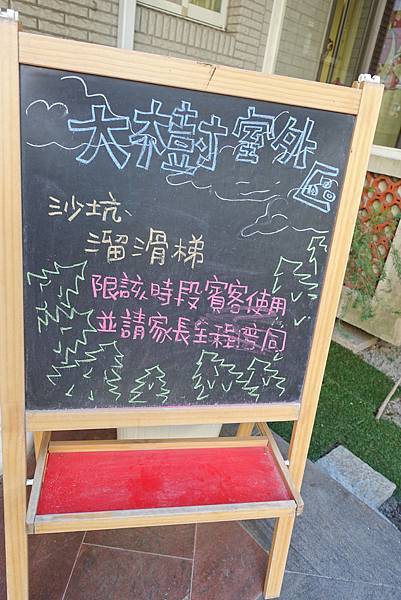 大樹室外區
沙坑、
溜滑梯
限該時段賓客使用
並請家長全程陪同